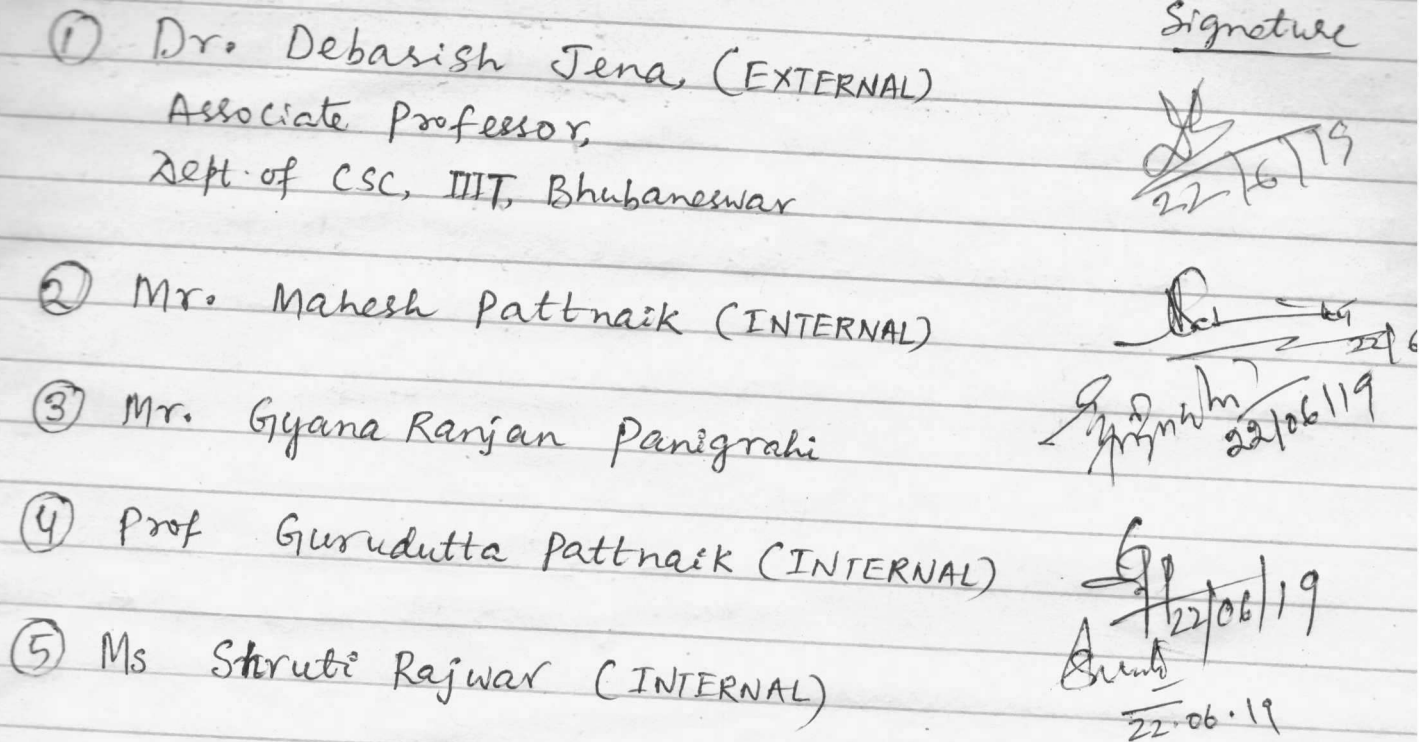 Signature
① Dr. Debasish Jena, (EXTERNAL)
Associate Professor,
Dept. of CSC, IIIT, Bhubaneswar
22/6/19
② Mr. Mahesh Pattnaik (INTERNAL)
22/6
③ Mr. Gyana Ranjan Panigrahi
22/06/19
④ Prof Gurudutta Pattnaik (INTERNAL)
22/06/19
⑤ Ms Shruti Rajwar (INTERNAL)
22.06.19